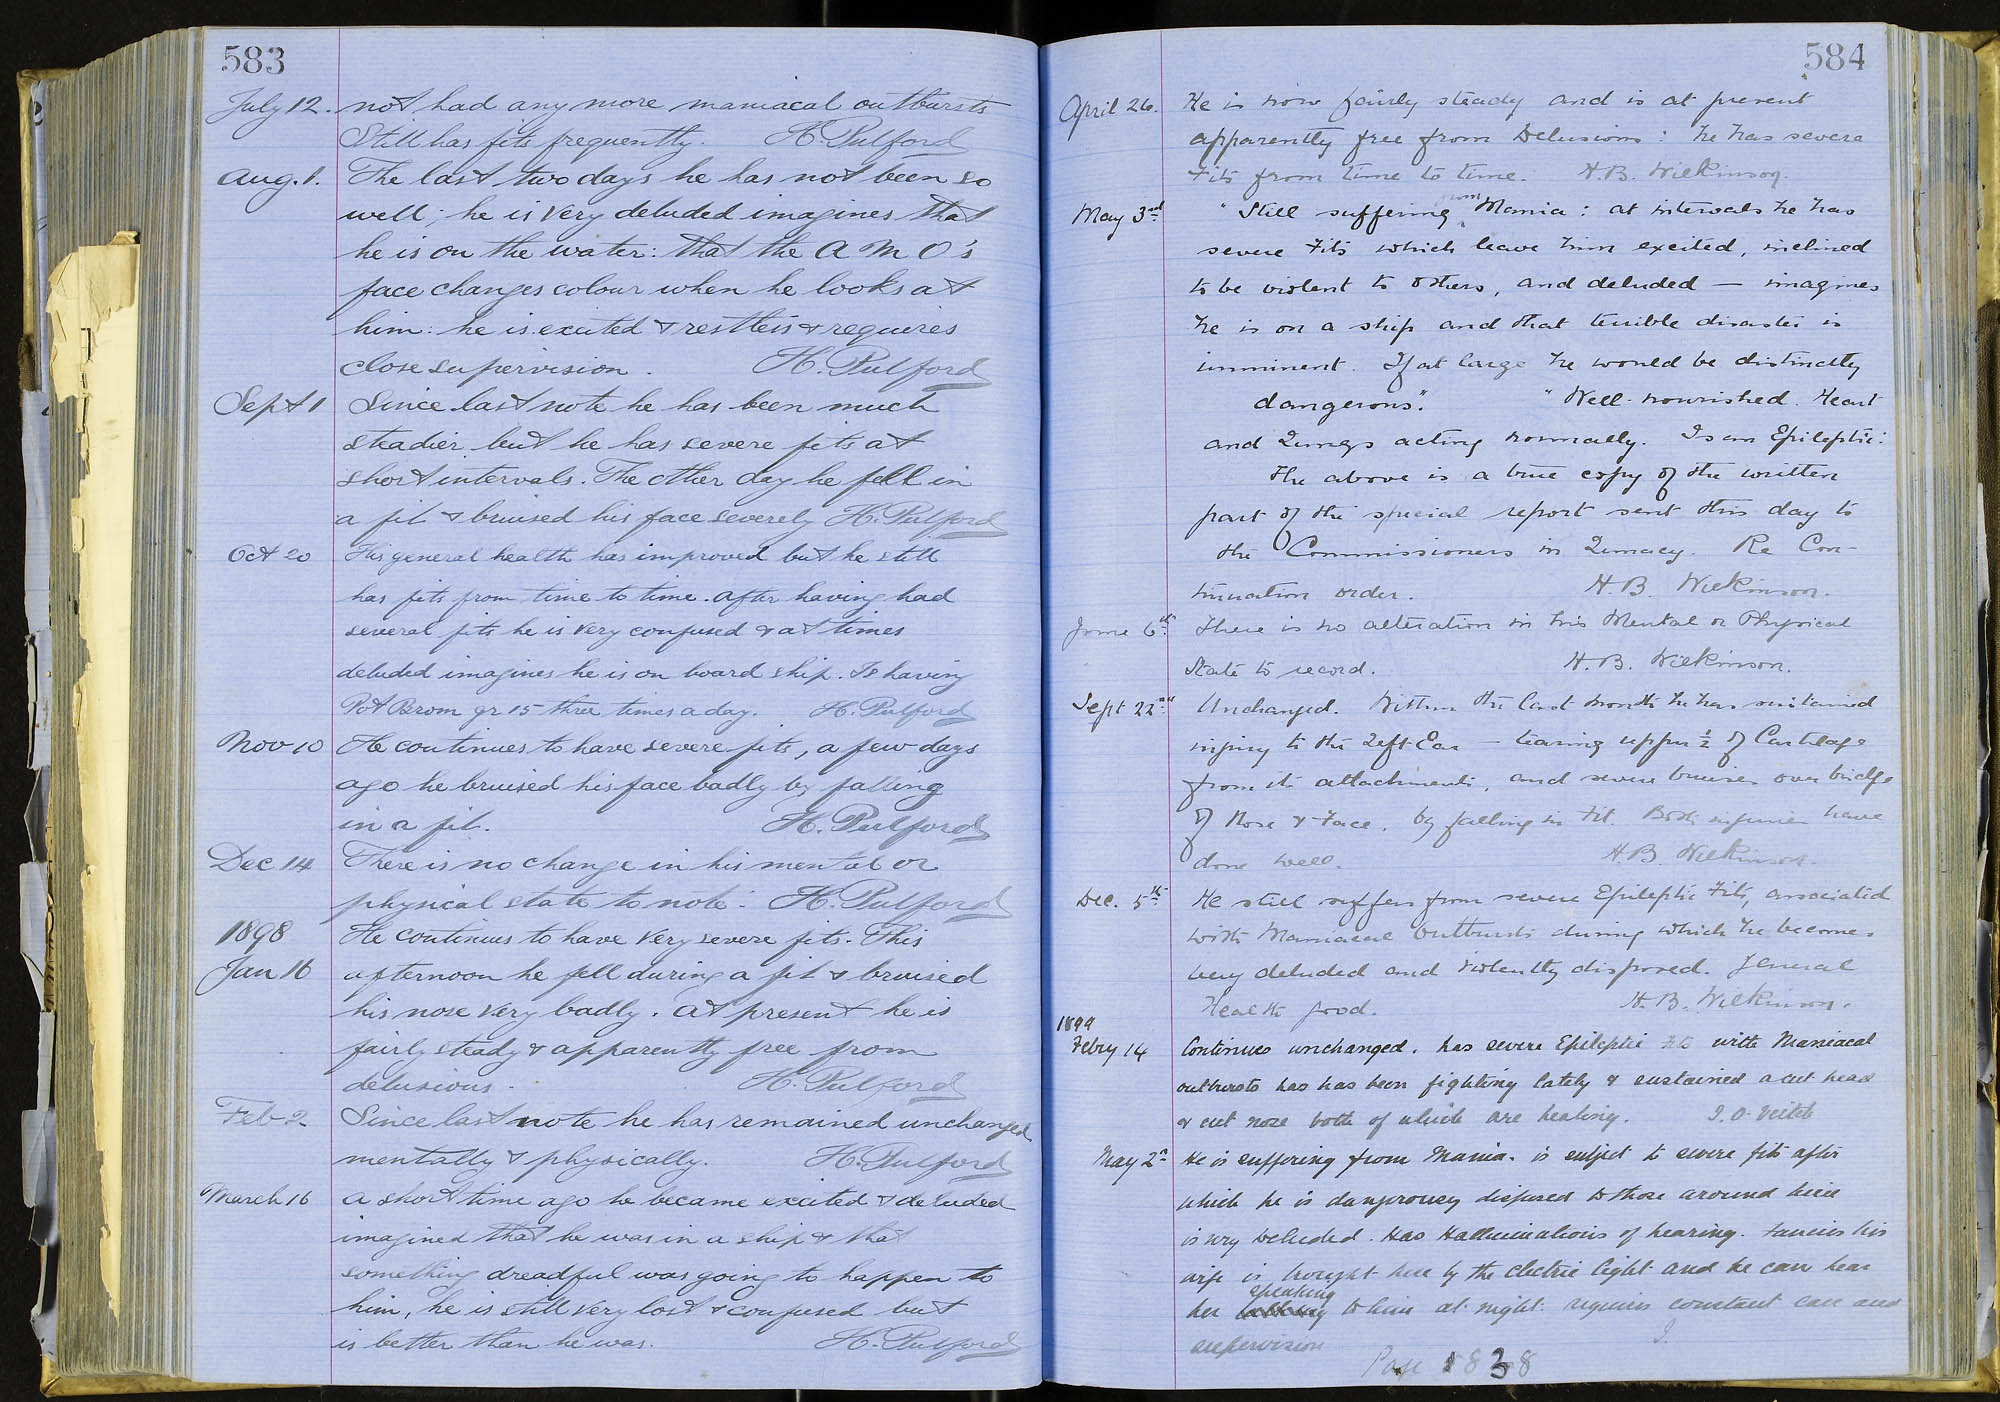 583
July 12. not had any more maniacal outbursts
Still has fits frequently. H. Pulford
Aug. 1. The last two days he has not been so
well; he is very deluded imagines that
he is on the water: that the A M O's
face changes colour when he looks at
him: he is excited & restless & requires
close supervision. H. Pulford
Sept 1 Since last note he has been much
steadier but he has severe fits at
short intervals. The other day he fell in
a fit & bruised his face severely H. Pulford
Oct 20 His general health has improved but he still
has fits from time to time. After having had
several fits he is very confused & at times
deluded imagines he is on board ship. Is having
Pot Brom gr 15 three times a day. H. Pulford
Nov 10 He continues to have severe fits, a few days
ago he bruised his face badly by falling
in a fit. H. Pulford
Dec 14 There is no change in his mental or
physical state to note. H. Pulford
1898 He continues to have very severe fits. This
Jan 16 afternoon he fell during a fit & bruised
his nose very badly. At present he is
fairly steady & apparently free from
delusions. H. Pulford
Feb 2. Since last note he has remained unchanged
mentally & physically. H. Pulford
March 16 A short time ago he became excited & deluded
imagined that he was in a ship & that
something dreadful was going to happen to
him, he is still very lost & confused but
is better than he was. H. Pulford
584
April 26. He is now fairly steady and is at present
apparently free from Delusions: he has severe
Fits from time to time. H.B. Wilkinson.
May 3rd "Still suffering from Mania: at intervals he has
severe Fits which leave him excited, inclined
to be violent to others, and deluded — imagines
he is on a ship and that terrible disaster is
imminent. If at large he would be distinctly
dangerous." "Well-nourished. Heart
and Lungs acting normally. Is an Epileptic."
The above is a true copy of the written
part of the special report sent this day to
the Commissioners in Lunacy. Re Con-
tinuation order. H.B. Wilkinson.
June 6th There is no alteration in his Mental or Physical
State to record. H.B. Wilkinson.
Sept 22nd Unchanged. Within the last month he has sustained
injury to the Left Ear — tearing upper ½ of Cartilage
from its attachments, and severe bruises over bridge
of Nose & Face, by falling in Fit. Both injuries have
done well. H.B. Wilkinson.
Dec. 5th He still suffers from severe Epileptic Fits, associated
with Maniacal Outbursts during which he becomes
very deluded and violently disposed. General
Health good. H.B. Wilkinson.
1899
Febry 14 Continues unchanged. has severe Epileptic Fits with Maniacal
outbursts has has been fighting lately & sustained a cut head
& cut nose both of which are healing. J. O. Veitch
May 2n He is suffering from Mania. is subject to severe fits after
which he is dangerously disposed to those around him
is very deluded. Has Hallucinations of hearing. Fancies his
wife is brought here by the electric light and he can hear
her speaking to him at night. requires constant care and
supervision J.
Page 1838